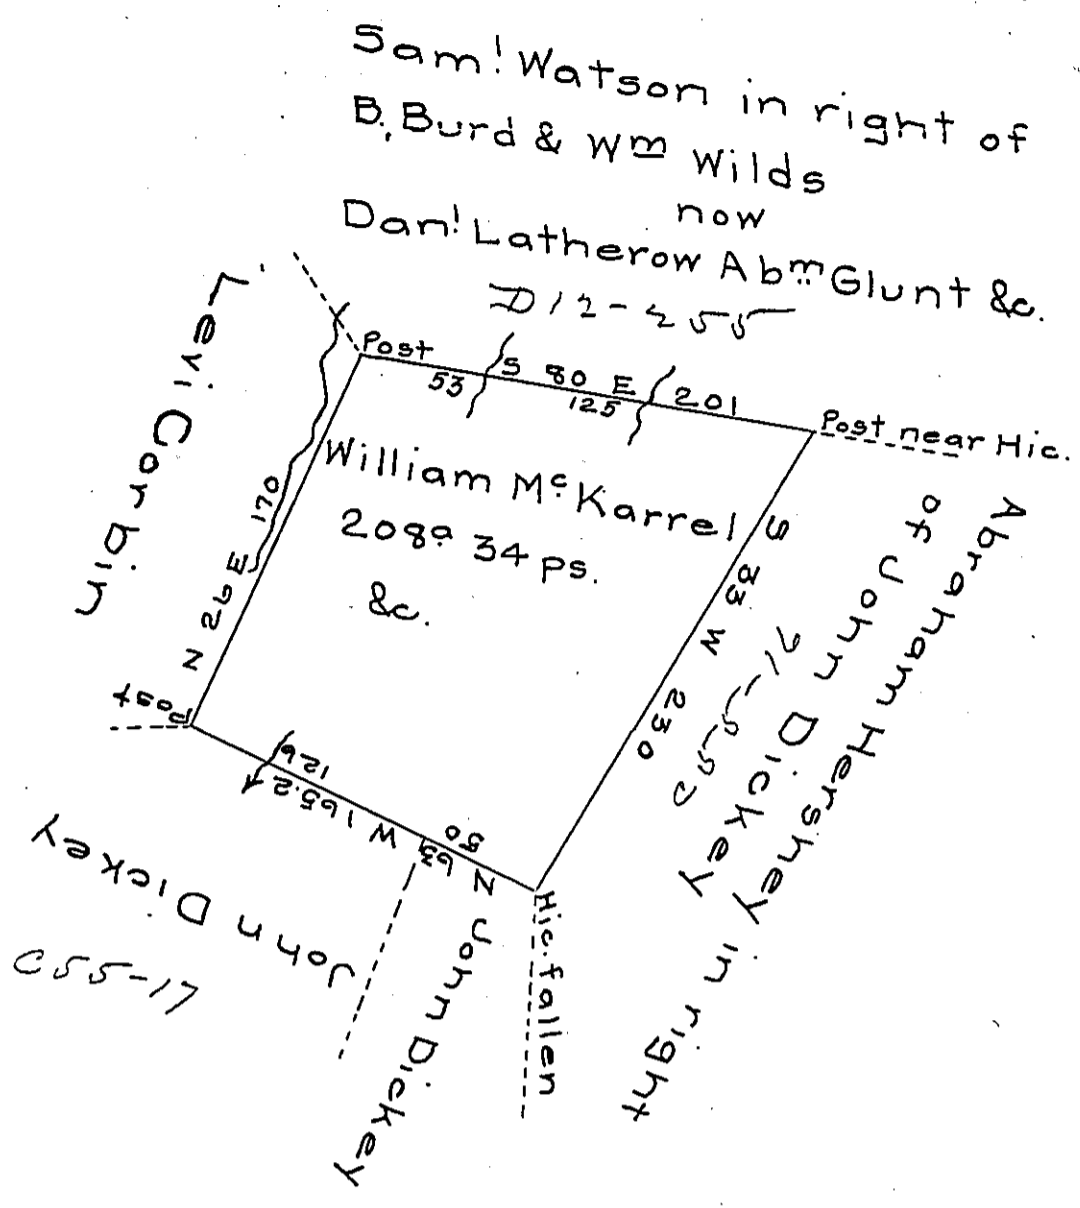 Sam! Watson in right of
B. Burd & Wm Wilds
now
Dan! Latherow Abm Glunt &c.
D12-255
Levi Corbin
Post
53
S 80 E
125
201
Post near Hic.
William McKarrel
208a 34 ps.
&c.
N 26 E 170
S 33 W 230
Abraham Hershey in right
of John Dickey
C55-16
Post
126
N 63 W 165.2
50
Hic. fallen
John Dickey
C55-17
John Dickey